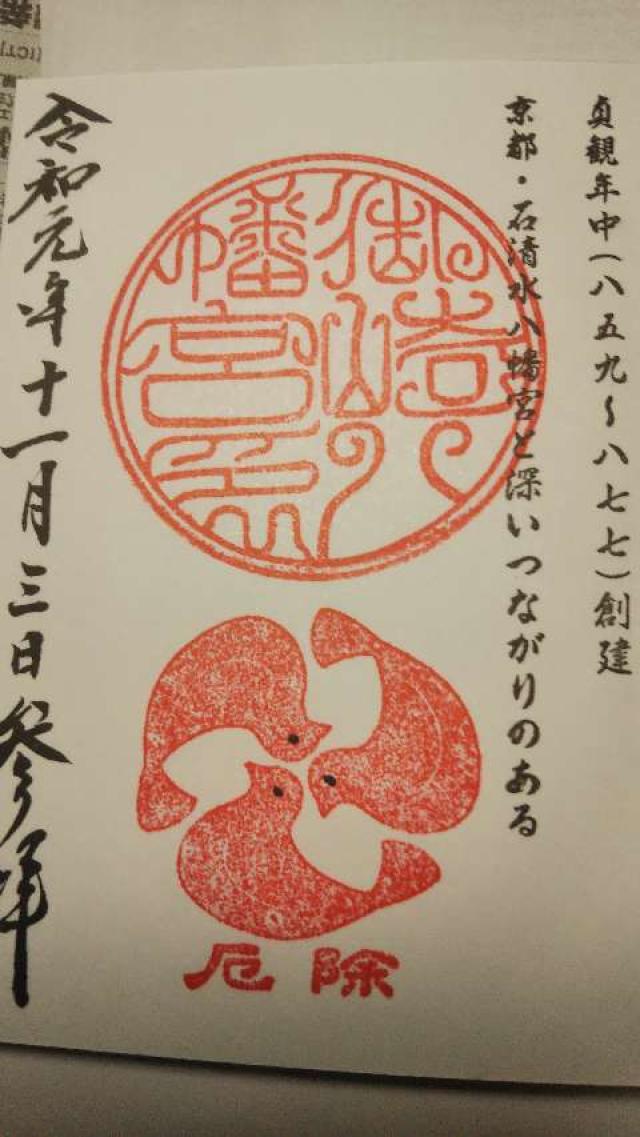 貞観年中(八五九〜八七七)創建
京都・石清水八幡宮と深いつながりのある
御崎八
幡宮
厄除
令和元年十一月三日参拝